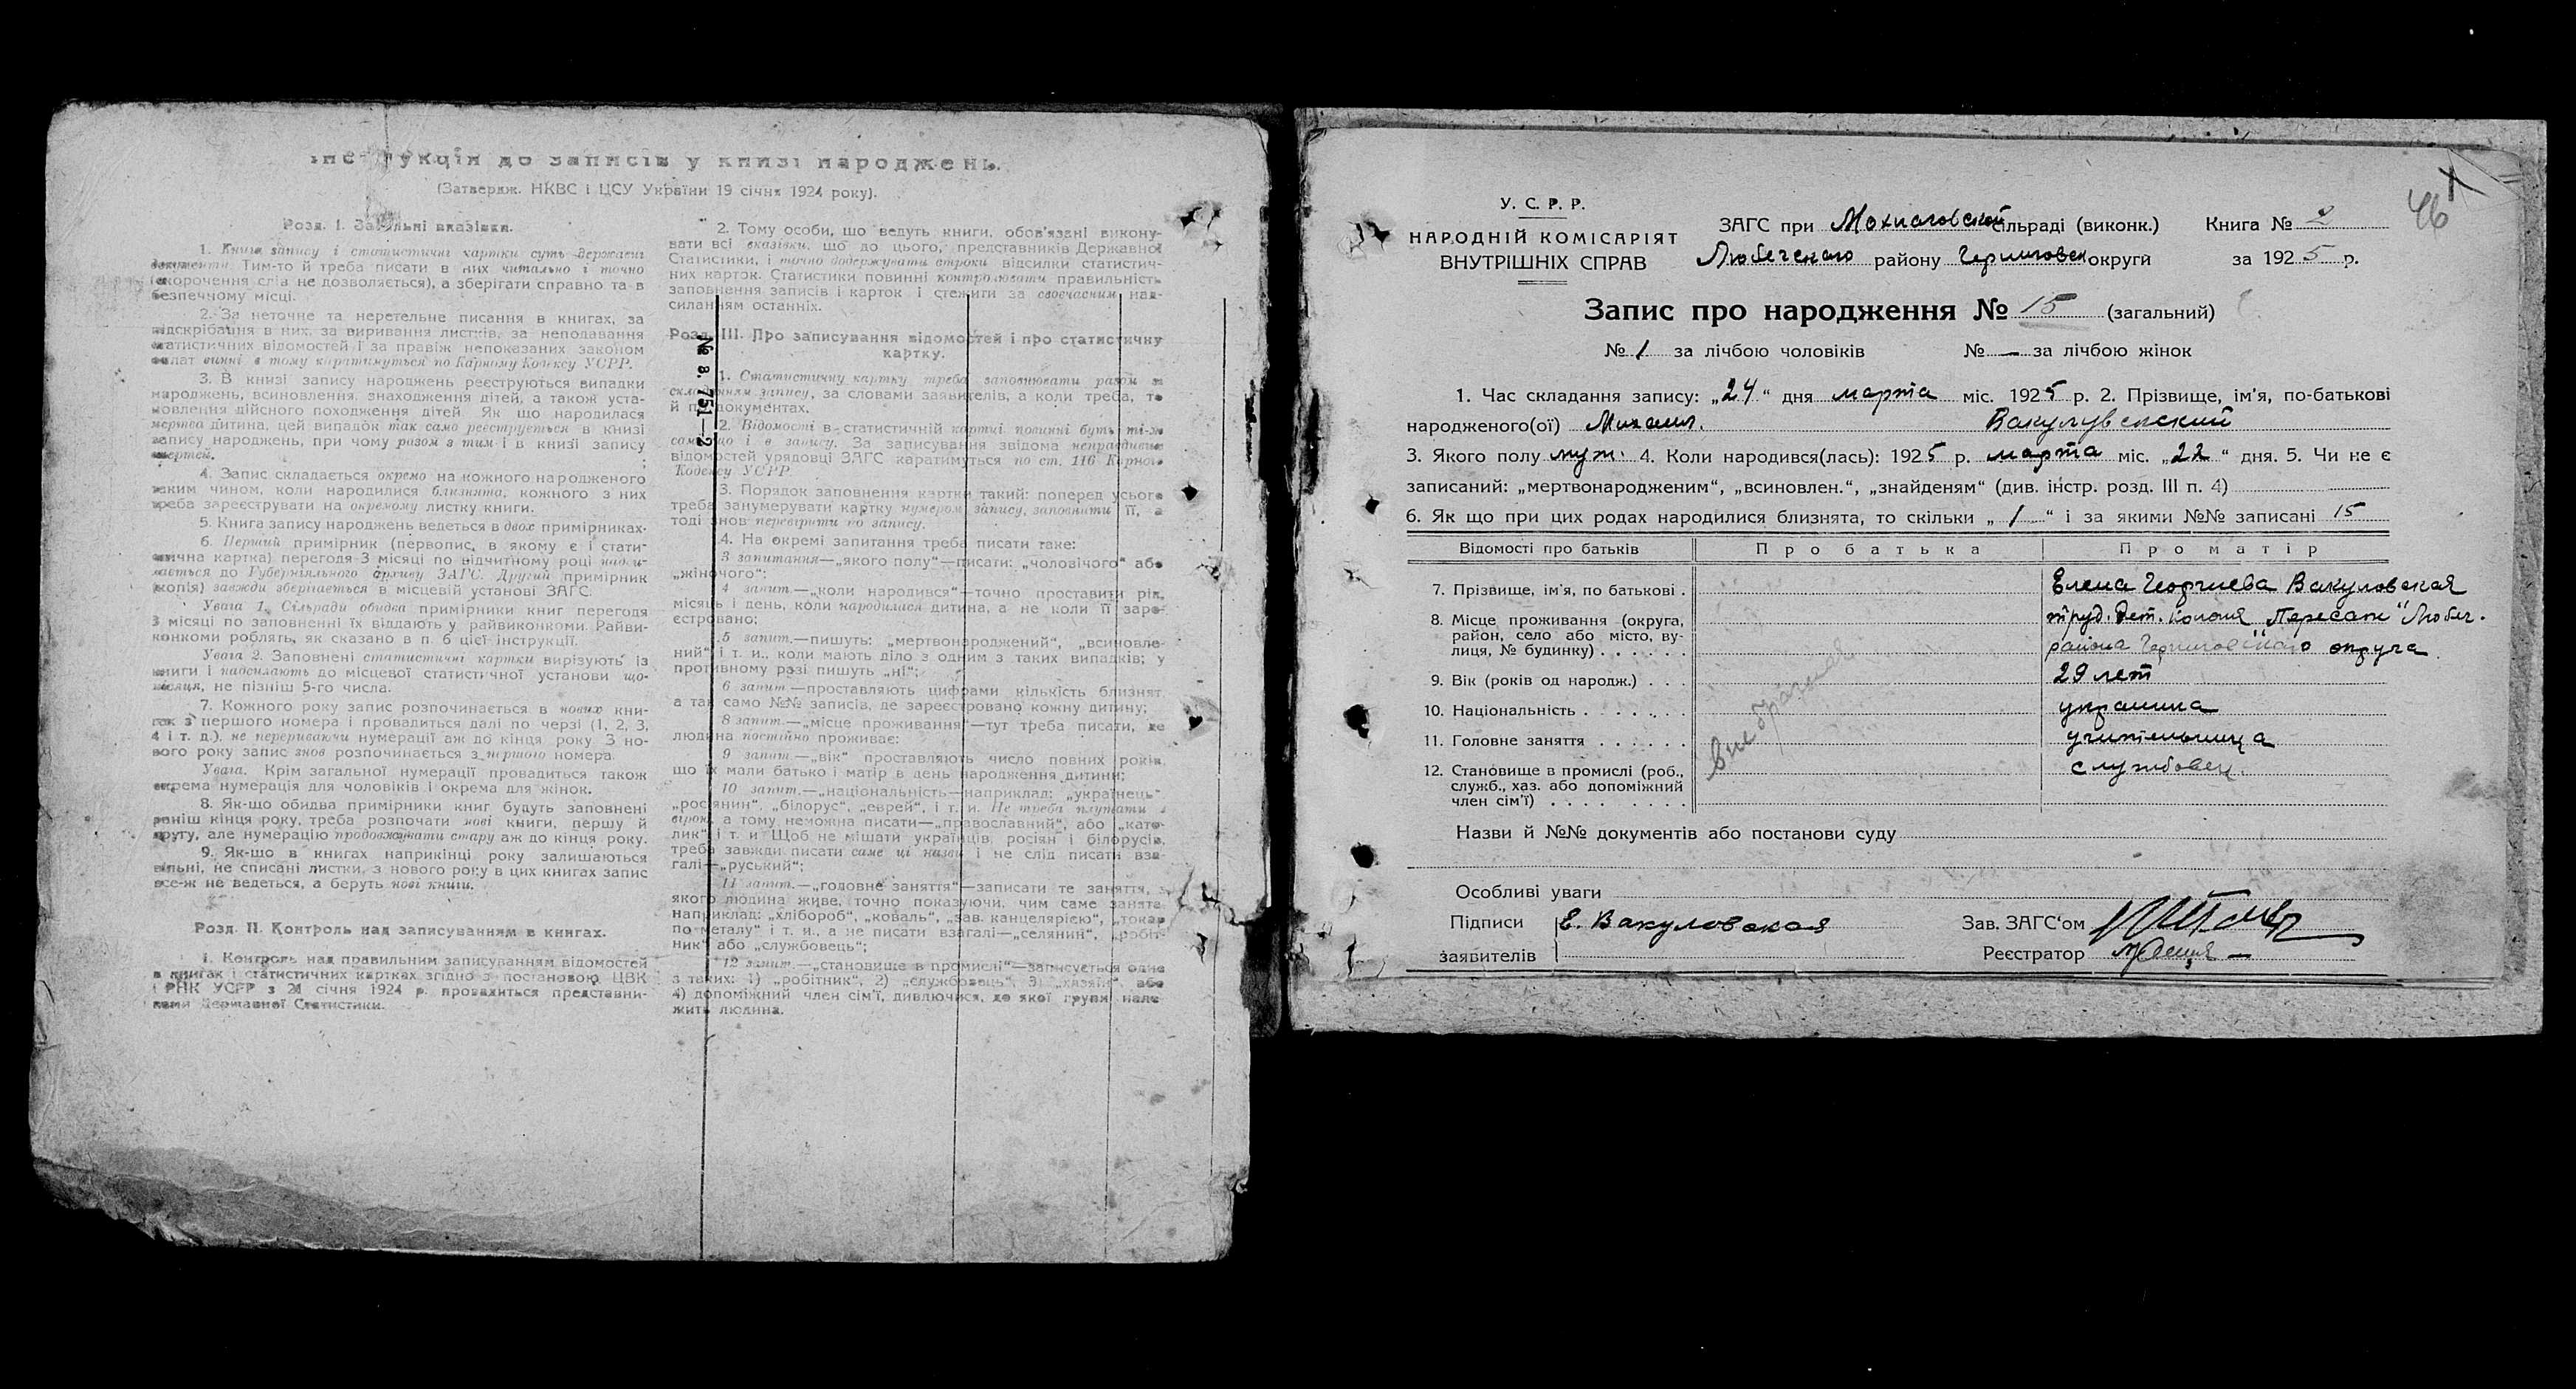 Інструкція до записів у книзі народжень.
(Затвердж. НКВС і ЦСУ України 19 січня 1924 року).
Розд. I. Загальні вказівки.
1. Книга запису і статистичні картки суть Державні
документи. Тим-то й треба писати в них читально і точно
(скорочення слів не дозволяється), а зберігати справно та в
безпечному місці.
2. За неточне та неретельне писання в книгах, за
підскрібання в них, за виривання листків, за неподавання
статистичних відомостей і за правіж непоказаних законом
оплат винні в тому каратимуться по Карному Кодексу УСРР.
3. В книзі запису народжень реєструються випадки
народжень, всиновлення, знаходження дітей, а також уста-
новлення дійсного походження дітей. Як що народилася
мертва дитина, цей випадок так само реєструється в книзі
запису народжень, при чому разом з тим і в книзі запису
смертей.
4. Запис складається окремо на кожного народженого
таким чином, коли народилися близнята, кожного з них
треба зареєструвати на окремому листку книги.
5. Книга запису народжень ведеться в двох примірниках.
6. Перший примірник (первопис, в якому є і стати-
стична картка) перегодя 3 місяці по відчитному році надси-
лається до Губерніяльного архиву ЗАГС. Другий примірник
(копія) завжди зберігається в місцевій установі ЗАГС.
Увага 1. Сільради обидва примірники книг перегодя
3 місяці по заповненні їх віддають у райвиконкоми. Райви-
конкоми роблять, як сказано в п. 6 цієї інструкції.
Увага 2. Заповнені статистичні картки вирізують із
книги і надсилають до місцевої статистичної установи що-
місяця, не пізніш 5-го числа.
7. Кожного року запис розпочинається в нових кни-
гах з першого номера і провадиться далі по черзі (1, 2, 3,
4 і т. д.), не перериваючи нумерації аж до кінця року. З но-
вого року запис знов розпочинається з першого номера.
Увага. Крім загальної нумерації провадиться також
окрема нумерація для чоловіків і окрема для жінок.
8. Як-що обидва примірники книг будуть заповнені
раніш кінця року, треба розпочати нові книги, першу й
другу, але нумерацію продовжувати стару аж до кінця року.
9. Як-що в книгах наприкінці року залишаються
вільні, не списані листки, з нового року в цих книгах запис
все-ж не ведеться, а беруть нові книги.
Розд. II. Контроль над записуванням в книгах.
1. Контроль над правильним записуванням відомостей
в книгах і статистичних картках згідно з постановою ЦВК
і РНК УСРР з 21 січня 1924 р. провадиться представни-
ками Державної Статистики.
2. Тому особи, що ведуть книги, обов'язані викону-
вати всі вказівки, що до цього, представників Державної
Статистики, і точно додержувати строки відсилки статистич-
них карток. Статистики повинні контролювати правильність
заповнення записів і карток і стежити за своєчасним над-
силанням останніх.
Розд. III. Про записування відомостей і про статистичну
картку.
1. Статистичну картку треба заповнювати разом зі
складанням запису, за словами заявителів, а коли треба, то
й по документах.
2. Відомості в статистичній картці повинні буть ті-ж
самі, що і в запису. За записування звідома неправдивих
відомостей урядовці ЗАГС каратимуться по ст. 116 Карного
Кодексу УСРР
3. Порядок заповнення картки такий: поперед усього
треба занумерувати картку нумером запису, заповнити її, а
тоді знов перевірити по запису.
4. На окремі запитання треба писати таке:
3 запитання—„якого полу“—писати: „чоловічого“ або
„жіночого“;
4 запит.—„коли народився“—точно проставити рік,
місяць і день, коли народилася дитина, а не коли її заре-
єстровано;
5 запит.—пишуть: „мертвонароджений“, „всиновле-
ний“ і т. и., коли мають діло з одним з таких випадків; у
противному разі пишуть „ні“;
6 запит.—проставляють цифрами кількість близнят,
а так само №№ записів, де зареєстровано кожну дитину;
8 запит.—„місце проживання“—тут треба писати, де
людина постійно проживає:
9 запит.—„вік“ проставляють число повних років,
що їх мали батько і матір в день народження дитини;
10 запит.—„національність—наприклад: „українець“,
„росіянин“, „білорус“, „еврей“, і т. и. Не треба плутати з
вірою, а тому неможна писати—„православний“, або „като-
лик“ і т. и Щоб не мішати українців, росіян і білорусів,
треба завжди писати саме ці назви і не слід писати вза-
галі—„руський“;
11 запит.—„головне заняття“—записати те заняття, з
якого людина живе, точно показуючи, чим саме занята,
наприклад: „хлібороб“, „коваль“, „зав. канцелярією“, „токар
по металу“ і т. и., а не писати взагалі—„селянин“, „робіт-
ник“ або „службовець“;
12 запит.—„становище в промислі“—записується одне
з таких: 1) „робітник“, 2) „службовець“, 3) „хазяїн“, або
4) допоміжний член сім'ї, дивлючися, до якої групи нале-
жить людина.
№ з. 751—2
46
У. С. Р. Р.
НАРОДНІЙ КОМІСАРІЯТ
ВНУТРІШНІХ СПРАВ
ЗАГС при Мохнаговской сільраді (виконк.) Книга № 2
Любечского району Черниговск округи за 1925 р.
Запис про народження № 15 (загальний)
№ 1 за лічбою чоловіків № — за лічбою жінок
1. Час складання запису: „24“ дня марта міс. 1925 р. 2. Прізвище, ім'я, по-батькові
народженого(ої) Михаил. Вакулувский
3. Якого полу муж. 4. Коли народився(лась): 1925 р. марта міс. „22“ дня. 5. Чи не є
записаний: „мертвонародженим“, „всиновлен.“, „знайденям“ (див. інстр. розд. III п. 4)
6. Як що при цих родах народилися близнята, то скільки „1“ і за якими №№ записані 15
Відомості про батьків Про батька Про матір
7. Прізвище, ім'я, по батькові . Елена Георгиева Вакуловская
8. Місце проживання (округа, труд. дет. колония „Пересаж“ Любеч.
район, село або місто, ву-
лиця, № будинку) . . . . . . района Черниговского округа
9. Вік (років од народж.) . . . 29 лет
10. Національність . . . . . . . украинка
11. Головне заняття . . . . . . учительница
12. Становище в промислі (роб., службовец.
служб., хаз. або допоміжний
член сім'ї) . . . . . . . . .
внебрачный
Назви й №№ документів або постанови суду
Особливі уваги
Підписи Е. Вакуловская Зав. ЗАГС'ом
заявителів Реєстратор